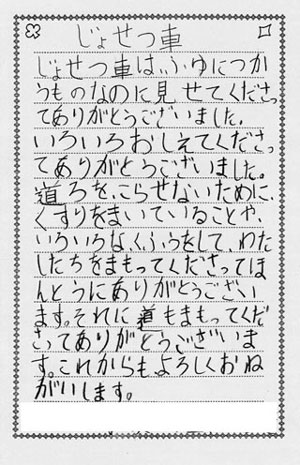 じょせつ車
じょせつ車は、ふゆにつか
うものなのに見せてくださっ
てありがとうございました。
いろいろおしえてくださっ
てありがとうございました。
道ろを、こらせないために、
くすりをまいていることや、
いろいろな、くふうをして、わた
したちをまもってくださってほ
んとうにありがとうござい
ます。それに道もまもってくだ
さってありがとうございま
す。これからも、よろしくおね
がいします。